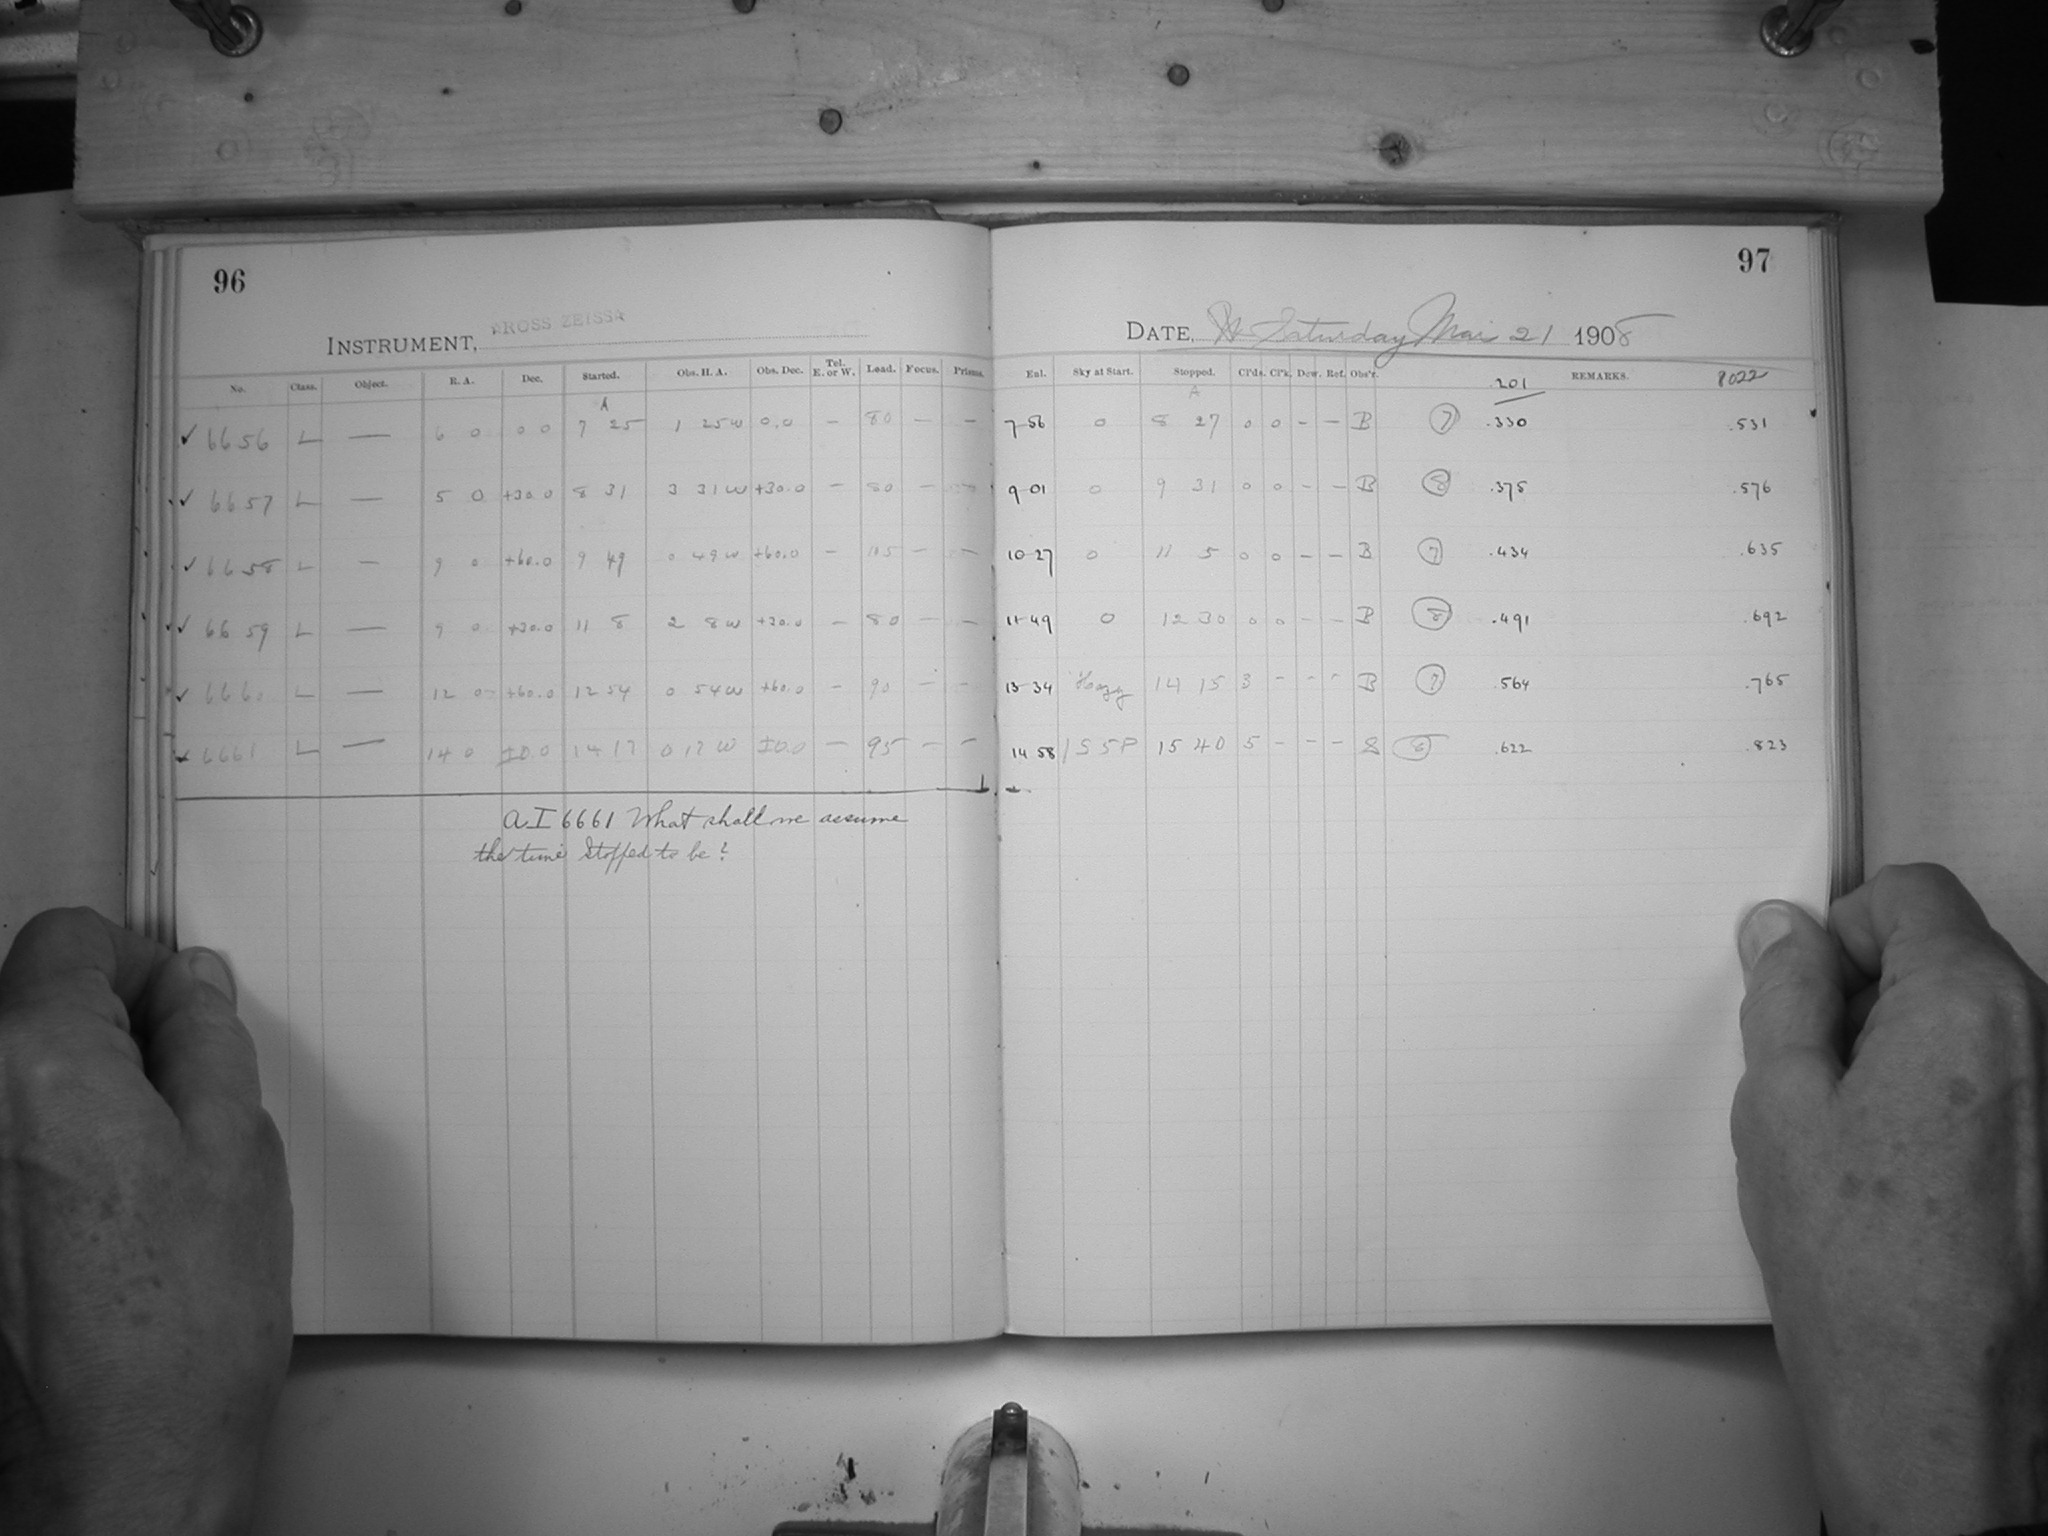 96
INSTRUMENT, ROSS ZEISS
No. Class. Object. R. A. Dec. Started. Obs. H. A. Obs. Dec. Tel. E. or W. Load. Focus. Prisms.
A
✓ 6656 L — 6 0 0 0 7 25 1 25 W 0.0 — 80 — —
✓ 6657 L — 5 0 +30.0 8 31 3 31 W +30.0 — 80 —
✓ 6658 L — 9 0 +60.0 9 49 0 49 W +60.0 — 105 — —
✓ 6659 L — 9 0 +30.0 11 8 2 8 W +30.0 — 80 — —
✓ 6660 L — 12 0 +60.0 12 54 0 54 W +60.0 — 90 — —
6661 L — 14 0 ±0.0 14 17 0 17 W ±0.0 — 95 — —
A I 6661 What shall we assume
the time Stopped to be?
97
DATE, Saturday Mar 21 1908
Sky at Start. Stopped. Cl'ds. Cl'k. Dew. Ref. Obs'r. .201 REMARKS. 8022
A
7-56 0 8 27 0 0 - - B 7 .330 .531
9-01 0 9 31 0 0 - - B 8 .375 .576
10-27 0 11 5 0 0 - - B 7 .434 .635
11-49 0 12 30 0 0 - - B 8 .491 .692
13-34 Hazy 14 15 3 - - - B 7 .564 .765
14 58 15 40 5 - - - .622 .823